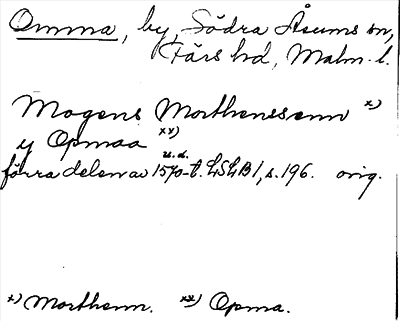 Omma, by, Södra Åsums sn,
Färs hd, Malm. l.
Mogens Morthenssenn x)
y Opmaa xx)
u.d.
förra delen av 1570-t. LSLB 1, s. 196. orig.
x) Morthenn. xx) Opma.